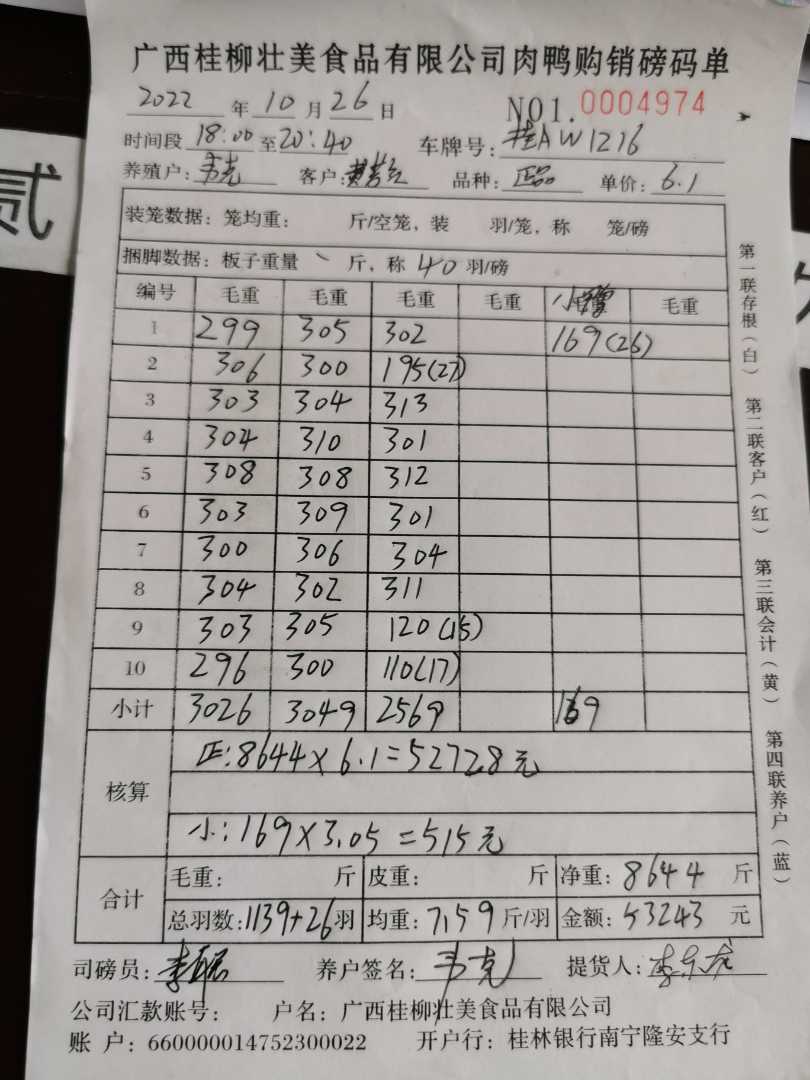 广西桂柳壮美食品有限公司肉鸭购销磅码单
2022 年 10 月 26 日 NO1.0004974
时间段 18:00 至 20:40 车牌号: 桂AW1216
养殖户: 韦克 客户: 品种: 正品 单价: 6.1
装笼数据: 笼均重: 斤/空笼, 装 羽/笼, 称 笼/磅
捆脚数据: 板子重量 斤, 称 40 羽/磅
编号 毛重 毛重 毛重 毛重 小 毛重
1 299 305 302 169(26)
2 306 300 195(27)
3 303 304 313
4 304 310 301
5 308 308 312
6 303 309 301
7 300 306 304
8 304 302 311
9 303 305 120(15)
10 296 300 110(17)
小计 3026 3049 2569 169
核算 正:8644×6.1=52728元
小:169×3.05=515元
合计 毛重: 斤 皮重: 斤 净重: 8644 斤
总羽数: 1139+26 羽 均重: 7.59 斤/羽 金额: 53243 元
司磅员: 养户签名: 韦克 提货人:
公司汇款账号: 户名: 广西桂柳壮美食品有限公司
账 户: 660000014752300022 开户行: 桂林银行南宁隆安支行
第一联存根(白) 第二联客户(红) 第三联会计(黄) 第四联养户(蓝)
贰